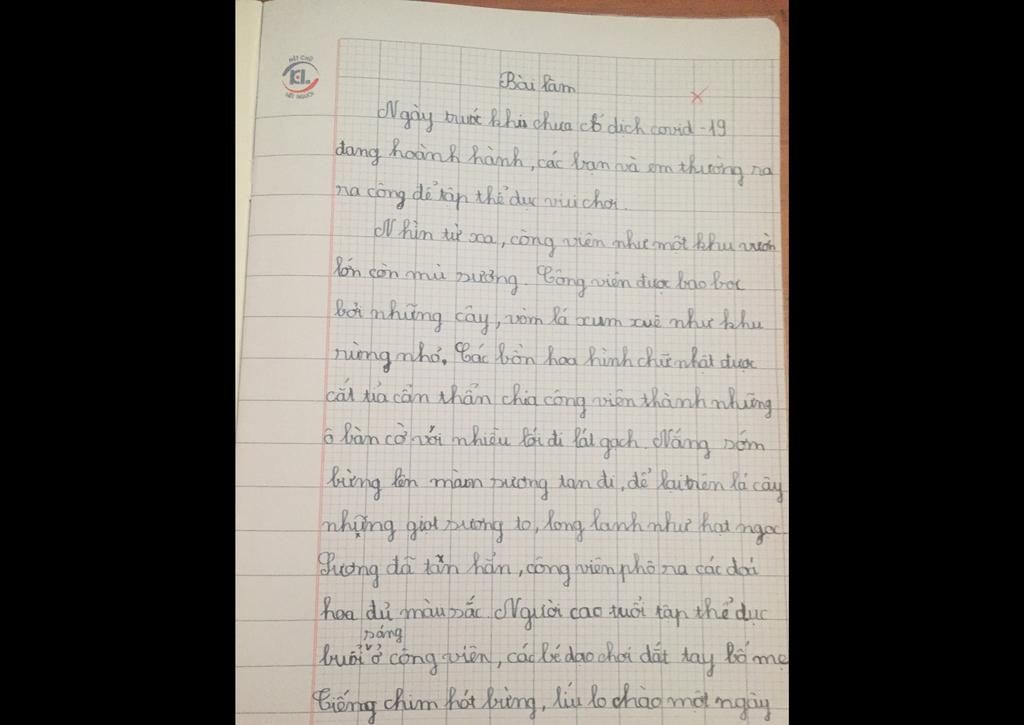 NÉT CHỮ
KL
NẾT NGƯỜI
Bài làm
Ngày trước khi chưa có dịch covid-19
đang hoành hành, các bạn và em thường ra
ra công để tập thể dục vui chơi.
Nhìn từ xa, công viên như một khu vườn
lớn còn mù sương. Công viên được bao bọc
bởi những cây, vòm lá xum xuê như khu
rừng nhỏ. Các bồn hoa hình chữ nhật được
cắt tỉa cẩn thẩn chia công viên thành những
ô bàn cờ với nhiều lối đi lát gạch. Nắng sớm
bừng lên màn sương tan đi, để lại trên lá cây
những giọt sương to, long lanh như hạt ngọc
Sương đã tản hẳn, công viên phô ra các dải
hoa đủ màu sắc. Người cao tuổi tập thể dục
sáng
buổi ở công viên, các bé dạo chơi dắt tay bố mẹ
Tiếng chim hót bừng, líu lo chào một ngày